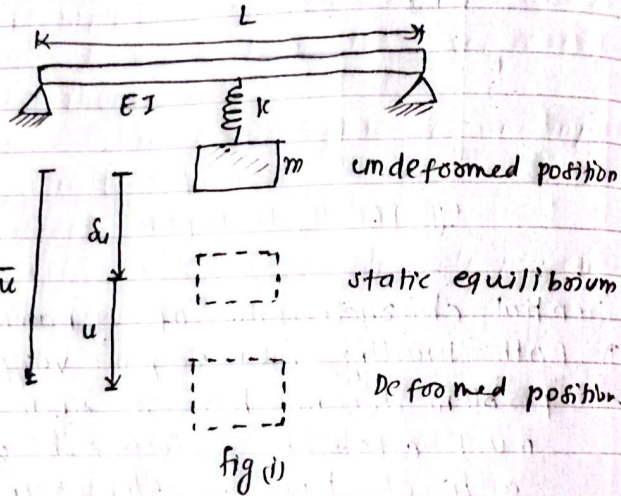 L
EI
K
m
undeformed position
δu
ū
static equilibrium
u
Deformed position.
fig (i)